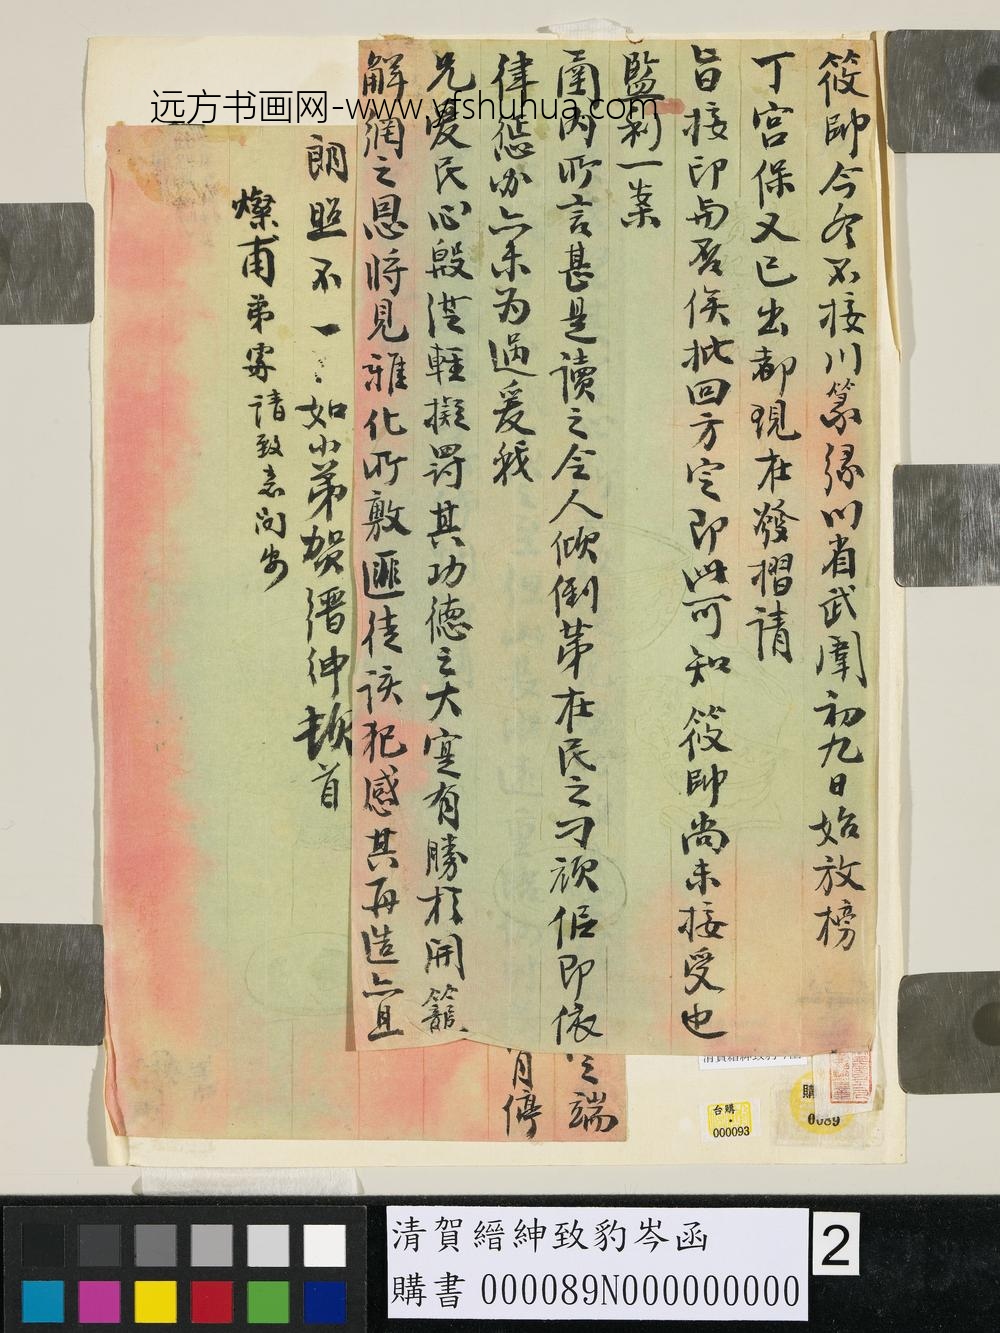 筱帥今冬不接川篆緣川省武闈初九日始放榜
丁宮保又已出都現在發摺請
旨接印與否俟批回方定即此可知筱帥尚未接受也
監利一案
函內所言甚是讀之令人傾倒第在民之刁頑倨即依
律懲办亦未为過爰我
兄愛民心殷從輕擬罸其功德之大寔有勝於開籠
解網之恩將見雅化所敷匪徒該犯感其再造亦且
朗照不一
如小弟賀縉紳頓首
燦甫弟處請致意问安
端
肯停
远方书画网-www.yfshuhua.com
清賀縉紳致豹岑函
台購
000093
購
0089
清賀縉紳致豹岑函
購書 000089N000000000
2